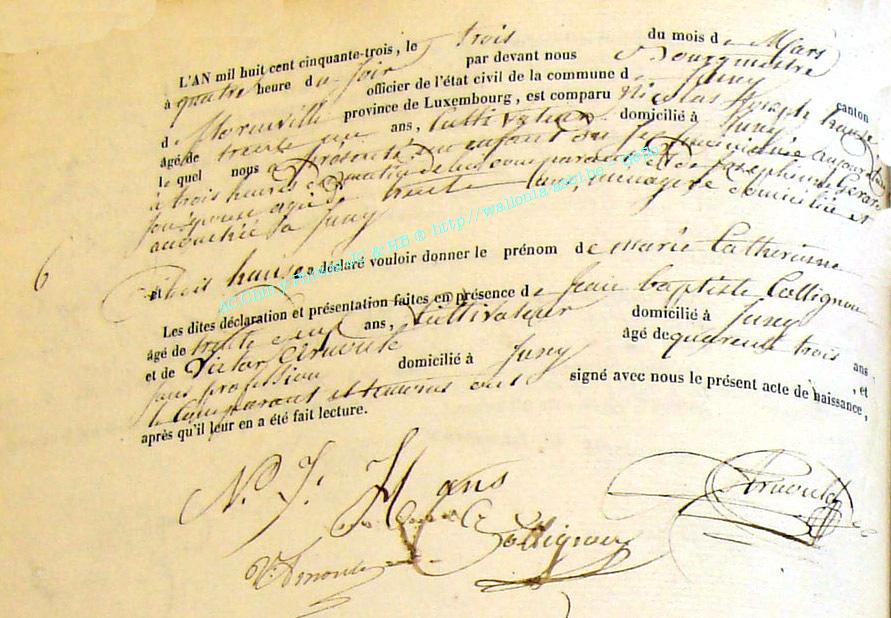 L'AN mil huit cent cinquante-trois, le trois du mois de Mars
à quatre heure du soir par devant nous Bourgmestre
officier de l'état civil de la commune de Juny canton
de province de Luxembourg, est comparu Nicolas Joseph hanse
âgé de trente un ans, Cultivateur domicilié à Juny
le quel nous a présenté un enfant du Sexe
à trois heures du matin de lui comparant et de Josephine Gerard
son épouse agée de trente ans, ménagère domiciliée et
accouchée à Juny
6
hanse a déclaré vouloir donner le prénom de marie Catherinne
Les dites déclaration et présentation faites en présence de Jean baptiste Collignon
âgé de trente ans, Cultivateur domicilié à Juny
et de Victor Arnould âgé de quarente trois ans
sans profession domicilié à Juny , et
le Comparant et temoins ont signé avec nous le présent acte de naissance,
après qu'il leur en a été fait lecture.
N. J. Hans
Arnould
Collignon
V Arnould
http://wallonia-asbl.be